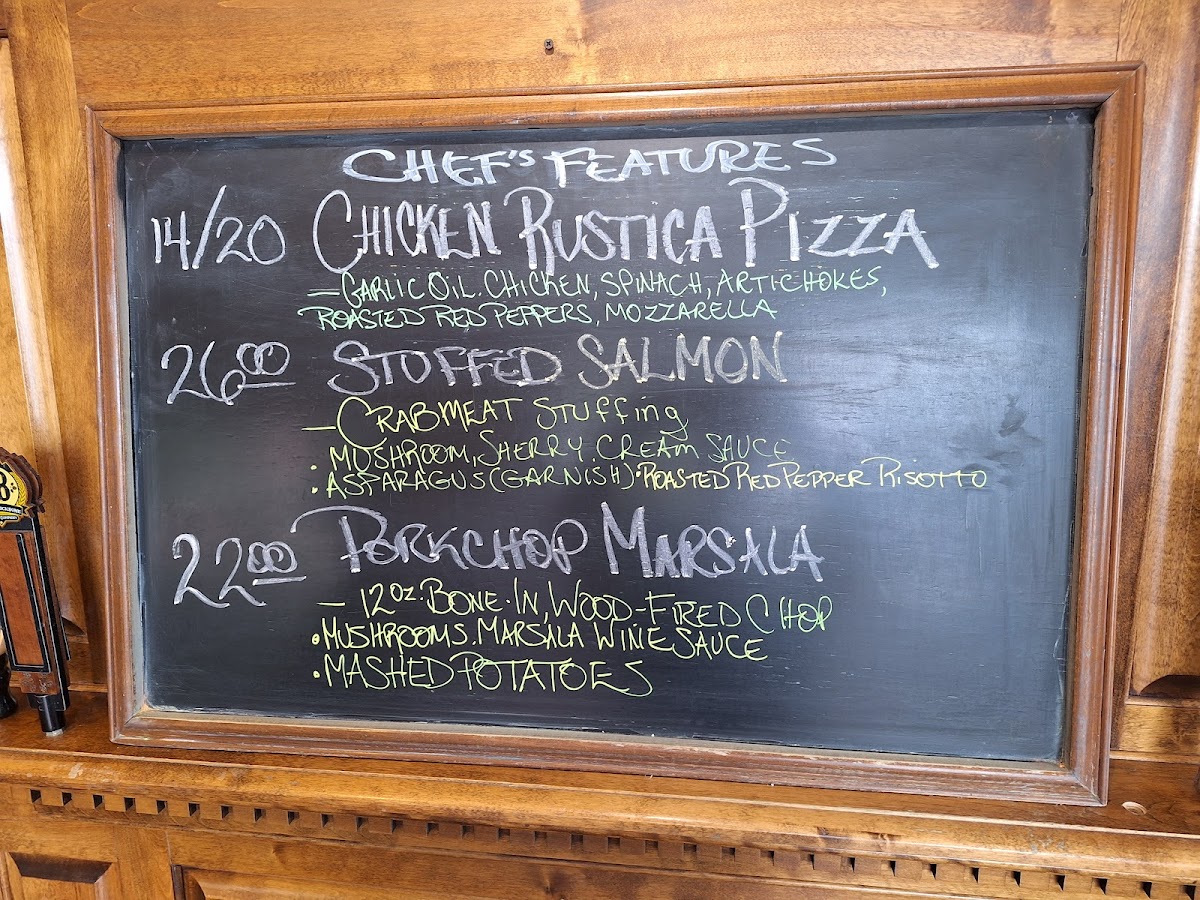 CHEF'S FEATURES
14/20 CHICKEN RUSTICA PIZZA
— GARLIC OIL. CHICKEN, SPINACH, ARTICHOKES,
ROASTED RED PEPPERS, MOZZARELLA
26.00 STUFFED SALMON
— CRABMEAT STUFFING
• MUSHROOM, SHERRY CREAM SAUCE
• ASPARAGUS (GARNISH) • ROASTED RED PEPPER RISOTTO
22.00 PORKCHOP MARSALA
— 12oz. BONE-IN, WOOD-FIRED CHOP
• MUSHROOMS. MARSALA WINE SAUCE
• MASHED POTATOES